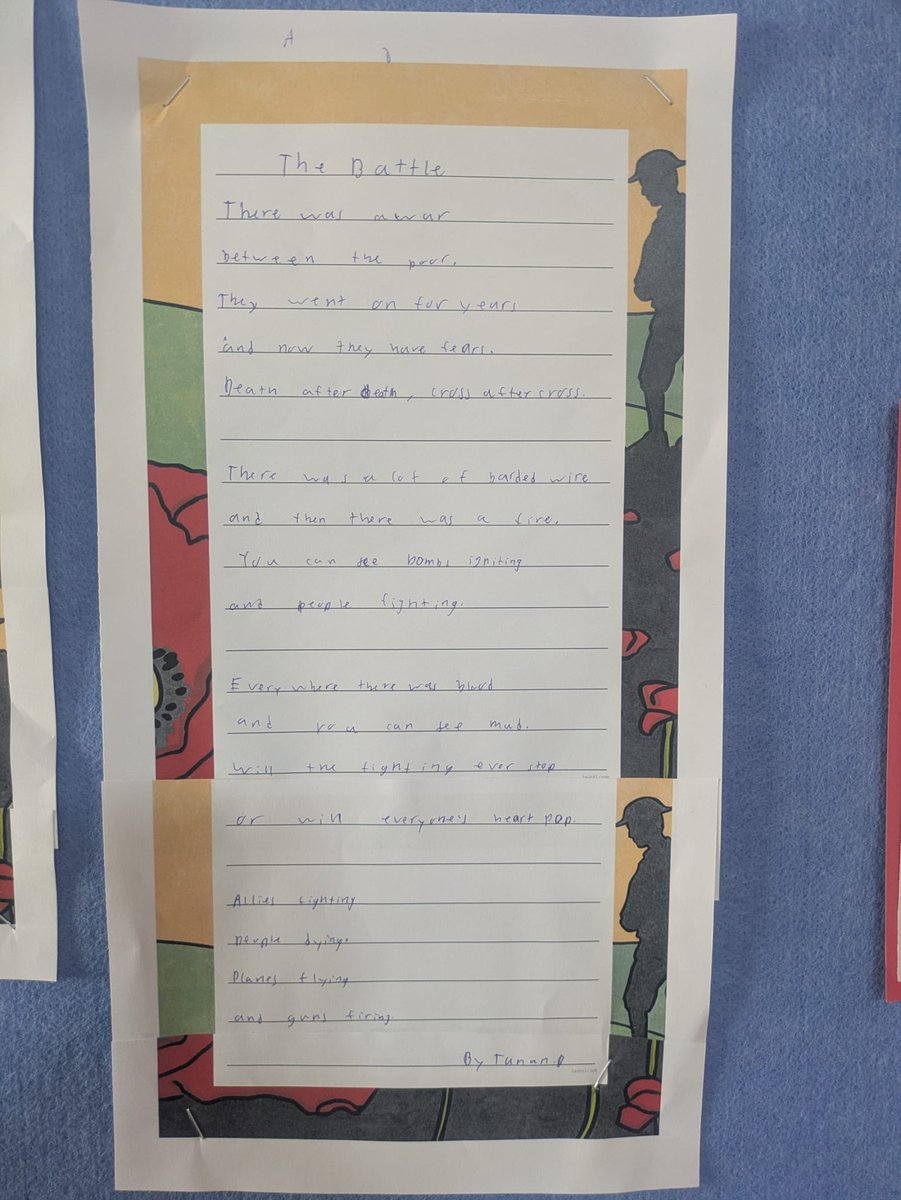 The Battle
There was a war
between the poor.
They went on for years
and now they have fears.
Death after death, cross after cross.
There was a lot of barded wire
and then there was a fire.
You can see bombs igniting
and people fighting.
Everywhere there was blood
and you can see mud.
Will the fighting ever stop
or will everyone's heart pop.
Allies fighting
people dying.
Planes flying
and guns firing.
By Tanan.P